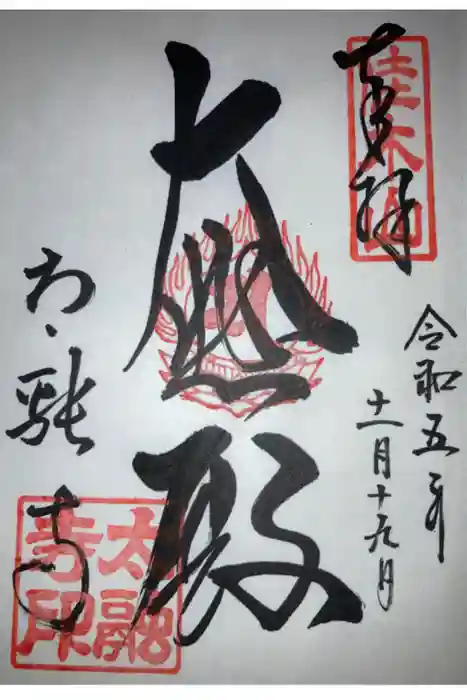 奉拝
佳木山
令和五年
十一月十九日
大悲殿
太融寺
太融
寺印